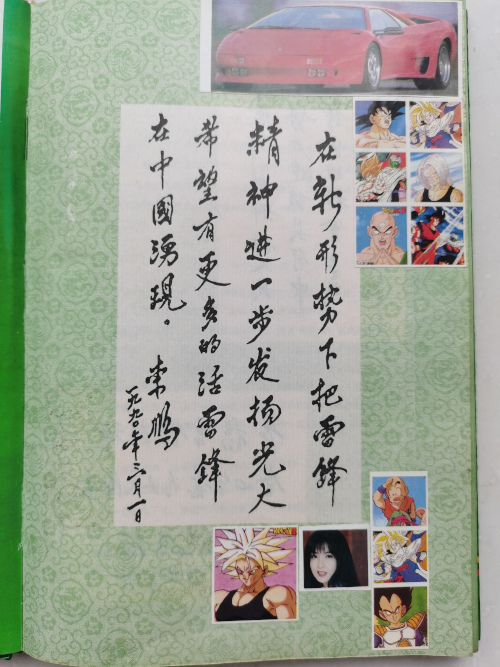 在新形势下把雷锋
精神進一步发扬光大
希望有更多的活雷锋
在中國湧現。
東鹏
一九九〇年三月一日